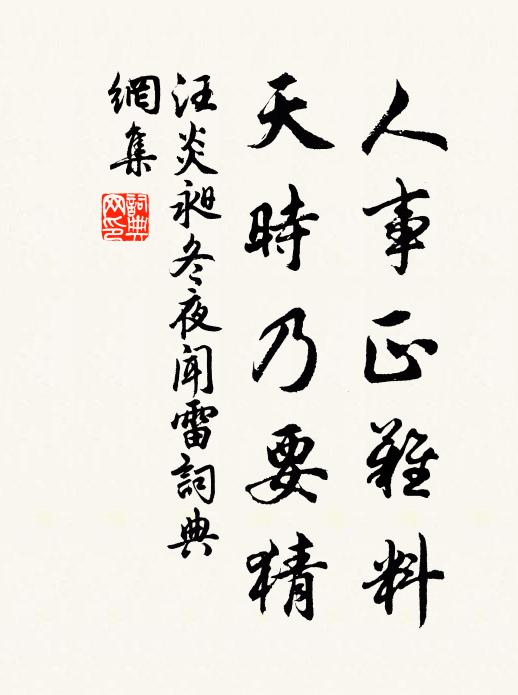 人事正難料
天時乃要猜
汪炎昶冬夜聞雷詞典
網集
詞典
网印